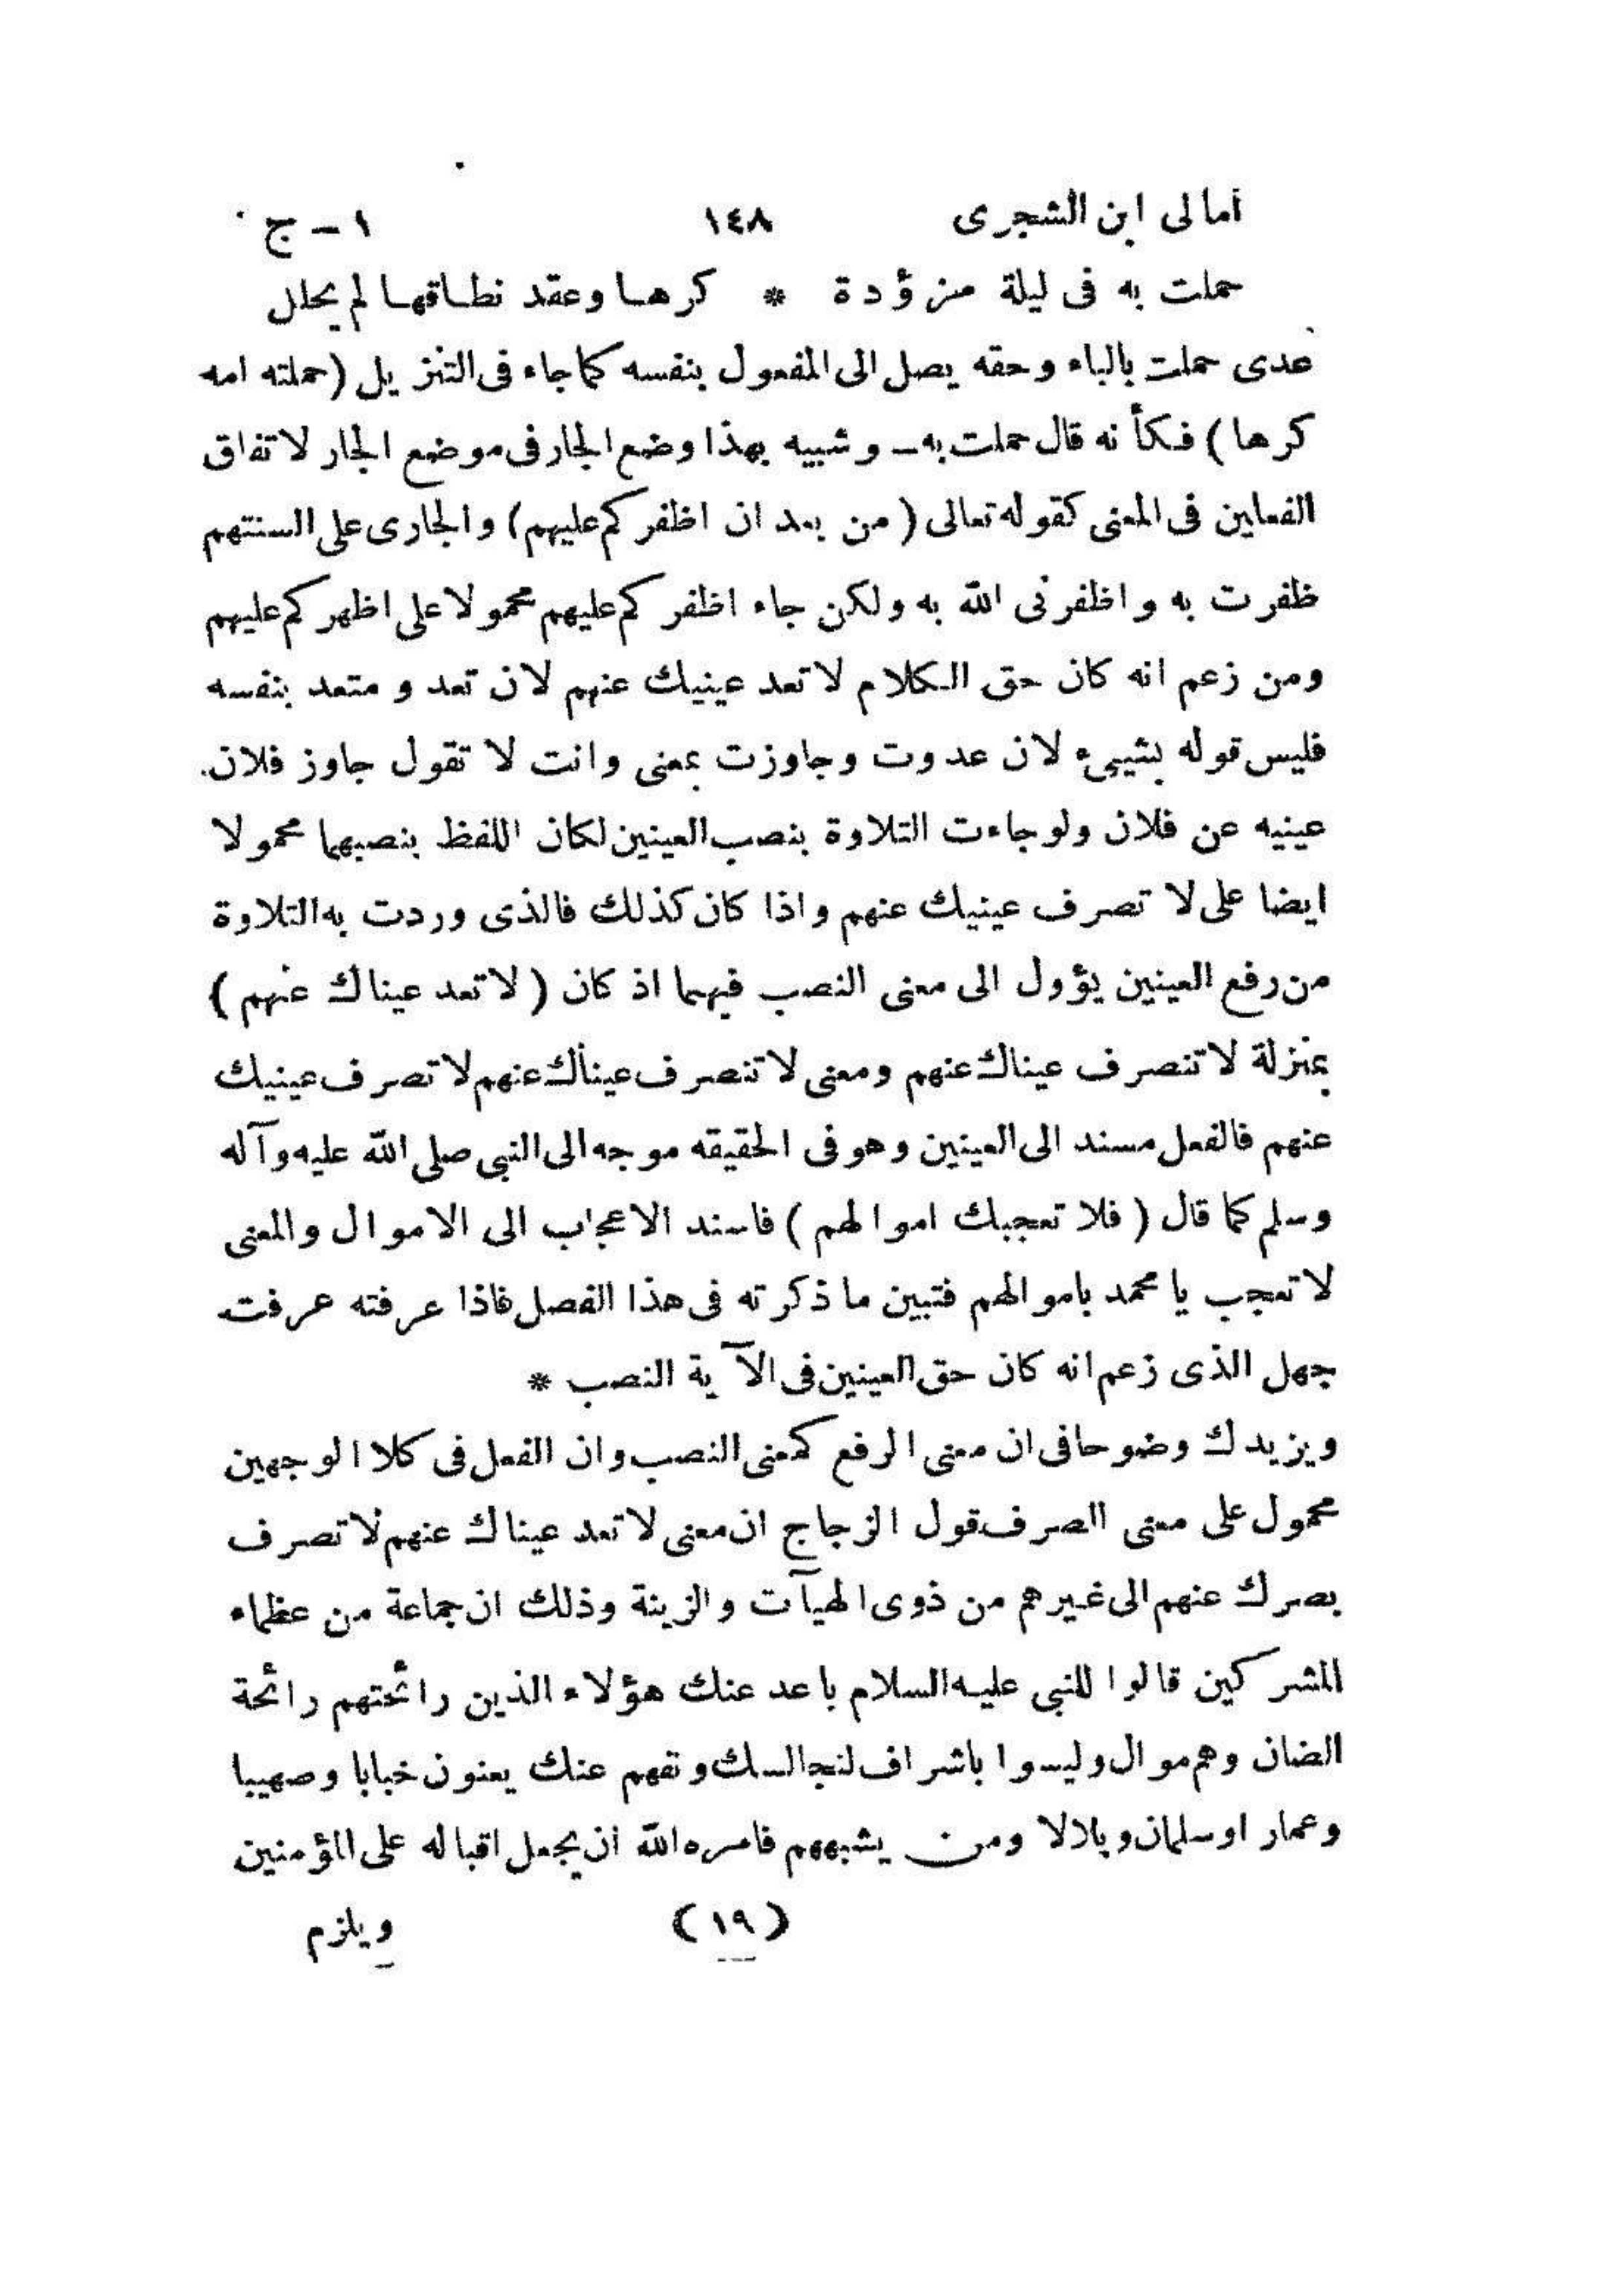 أمالى ابن الشجرى ١٤٨ ١ - ج
حملت به فى ليلة مزؤدة * كرها وعقد نطاقها لم يحلل
عدى حملت بالباء وحقه يصل الى المفعول بنفسه كما جاء فى التنزيل (حملته امه
كرها) فكأنه قال حملت به ــ وشبيه بهذا وضع الجار فى موضع الجار لاتفاق
الفعلين فى المعنى كقوله تعالى (من بعد ان اظفركم عليهم) والجارى على السنتهم
ظفرت به واظفرنى الله به ولكن جاء اظفركم عليهم محمولا على اظهركم عليهم
ومن زعم انه كان حق الكلام لا تعد عينيك عنهم لان تعد و متعد بنفسه
فليس قوله بشيىء لان عدوت وجاوزت بمعنى وانت لا تقول جاوز فلان.
عينيه عن فلان ولو جاءت التلاوة بنصب العينين لكان اللفظ بنصبهما محمولا
ايضا على لا تصرف عينيك عنهم واذا كان كذلك فالذى وردت به التلاوة
من رفع العينين يؤول الى معنى النصب فيهما اذ كان (لا تعد عيناك عنهم)
بمنزلة لا تنصرف عيناك عنهم ومعنى لا تنصرف عيناك عنهم لا تصرف عينيك
عنهم فالفعل مسند الى العينين وهو فى الحقيقه موجه الى النبى صلى الله عليه وآله
وسلم كما قال (فلا تعجبك اموالهم) فاسند الاعجاب الى الاموال والمعنى
لا تعجب يا محمد باموالهم فتبين ما ذكرته فى هذا الفصل فاذا عرفته عرفت
جهل الذى زعم انه كان حق العينين فى الآية النصب *
ويزيدك وضوحا فى ان معنى الرفع كمعنى النصب وان الفعل فى كلا الوجهين
محمول على معنى الصرف قول الزجاج ان معنى لا تعد عيناك عنهم لا تصرف
بصرك عنهم الى غيرهم من ذوى الهيآت والزينة وذلك ان جماعة من عظماء
المشركين قالوا للنبى عليه السلام باعد عنك هؤلاء الذين رائحتهم رائحة
الضان وهم موال وليسوا باشراف لنجالسك وتفهم عنك يعنون خبابا وصهيبا
وعمار اوسلمان وبلالا ومن يشبههم فامره الله أن يجعل اقباله على المؤمنين
(١٩) ويلزم